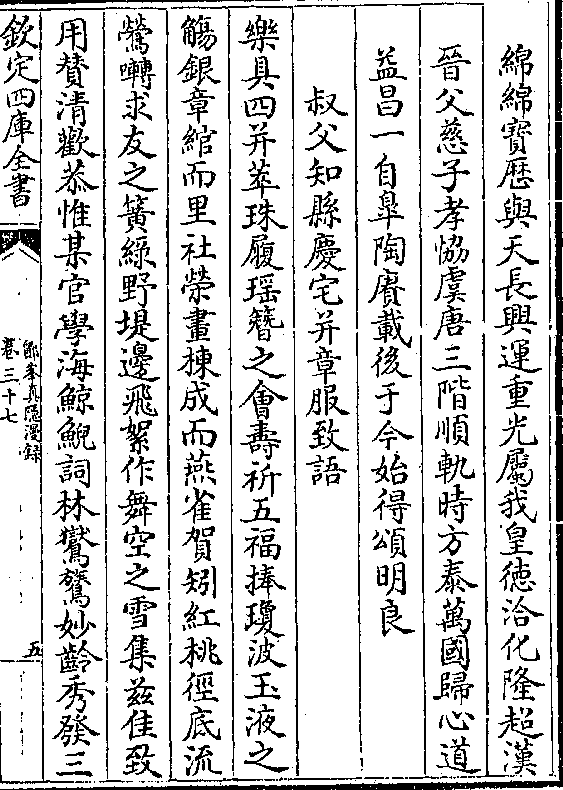 綿綿寶歴與天長興運重光屬我皇徳洽化隆超漢
晉父慈子孝恊虞唐三階順軌時方泰萬國歸心道
益昌一自臯陶賡載後于今始得頌明良
叔父知縣慶宅并章服致語
樂具四并萃珠履瑶簪之會壽祈五福捧瓊波玉液之
觴銀章綰而里社榮畫棟成而燕雀賀矧紅桃徑底流
鶯囀求友之簧緑野堤邊飛絮作舞空之雪集兹佳致
用賛清歡恭惟某官學海鯨鯢詞林鸑鷟妙齡秀發三
欽定四庫全書
鄮峯真隠漫録
卷三十七
五